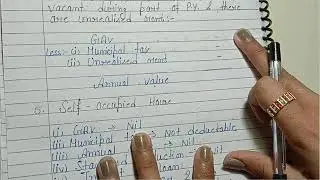 vacant during part of P.Y. & there
are unrealised rent:-
GAV -
Less:- (i) Municipal tax -
(ii) Unrealised rent -
Annual value
5. Self-occupied House
(i) GAV → Nil
(ii) Municipal Not deductable
(iii) Annual → Nil
(iv) Sta uction - Nil
(v) loan -